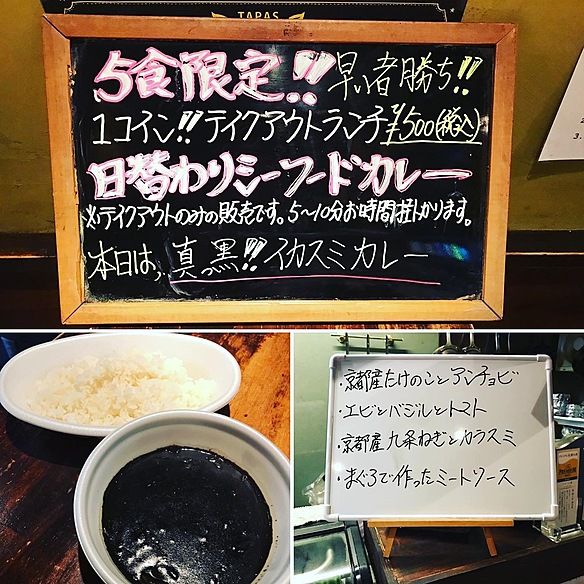 TAPAS
5食限定!! 早い者勝ち!!
1コイン!! テイクアウトランチ ¥500(税込)
日替わりシーフードカレー
※テイクアウトのみの販売です。5〜10分お時間掛かります。
本日は、真っ黒!! イカスミカレー
・京都産たけのことアンチョビ
・エビとバジルとトマト
・京都産九条ねぎとカラスミ
・まぐろで作ったミートソース